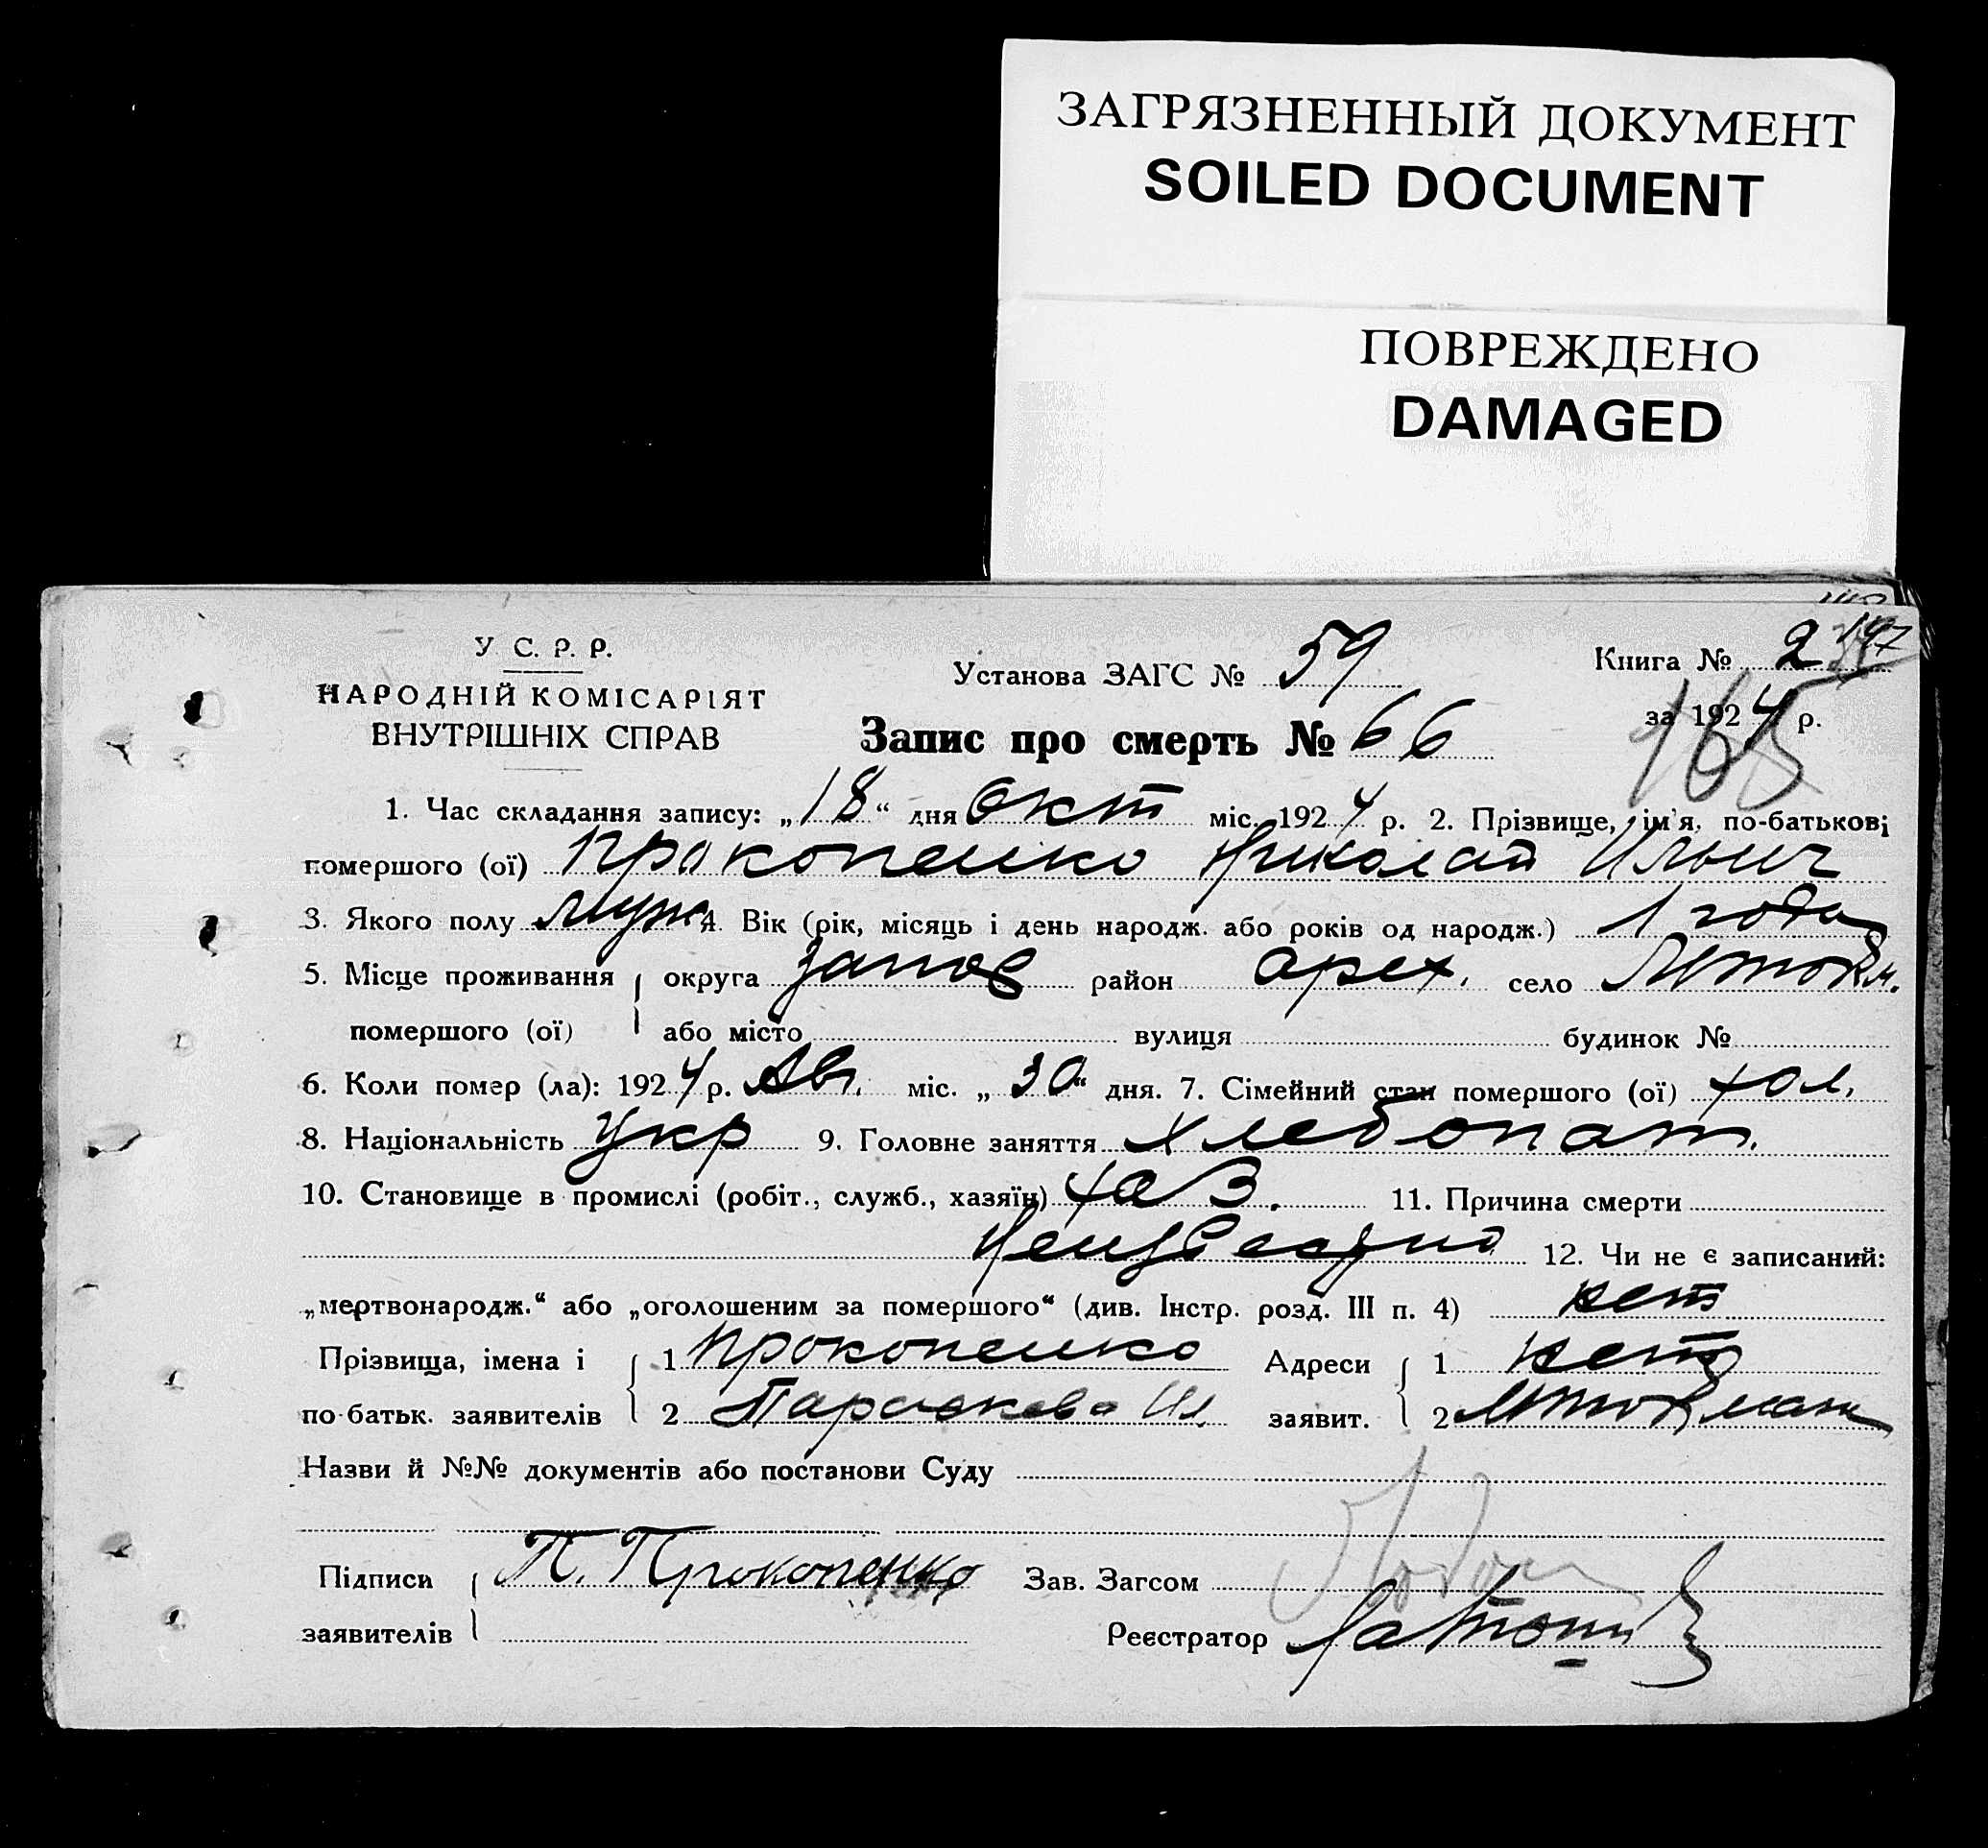 ЗАГРЯЗНЕННЫЙ ДОКУМЕНТ
SOILED DOCUMENT
ПОВРЕЖДЕНО
DAMAGED
У С. Р. Р.
НАРОДНІЙ КОМІСАРІЯТ
ВНУТРІШНІХ СПРАВ
Установа ЗАГС № 59
Книга № 2
за 1924 р.
165
Запис про смерть № 66
1. Час складання запису: „18“ дня Окт міс. 1924 р. 2. Прізвище, ім'я, по-батькові
помершого (ої) Прокопенко Николай Ильич
3. Якого полу муж 4. Вік (рік, місяць і день народж. або років од народж.) 1 года
5. Місце проживання округа Запор район Орех. село
помершого (ої) або місто вулиця будинок №
6. Коли помер (ла): 1924 р. Авг. міс. „30“ дня. 7. Сімейний стан помершого (ої) хол.
8. Національність Укр 9. Головне заняття Хлебопаш.
10. Становище в промислі (робіт., служб., хазяїн) хаз. 11. Причина смерти
Неизвестно 12. Чи не є записаний:
„мертвонародж.“ або „оголошеним за помершого“ (див. Інстр. розд. III п. 4) нет
Прізвища, імена і 1 Прокопенко Адреси 1 нет
по-батьк. заявителів 2 Параскева Ил. заявит. 2
Назви й №№ документів або постанови Суду
Підписи П. Прокопенко Зав. Загсом
заявителів Реєстратор